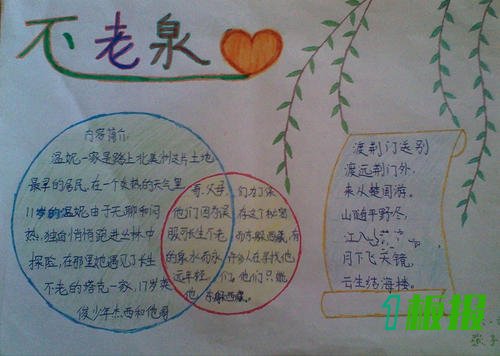 不老泉
内容简介:
温妮一家是踏上北美洲这片土地
最早的居民,在一个炎热的天气里
11岁的温妮由于无聊和闷
热,独自悄悄跑进丛林中
探险,在那里她遇见了长生
不老的塔克一家,17岁英
俊少年杰西和他哥
哥、父母,们为了保
他们因为误存这个秘密
服可长生不老而东躲西藏,有
的泉水而永许多人在寻找他
远年轻,们。他们只能
他东躲西藏。
渡荆门送别
渡远荆门外,
来从楚国游。
山随平野尽,
江入
月下飞天镜,
云生结海楼。
1板报